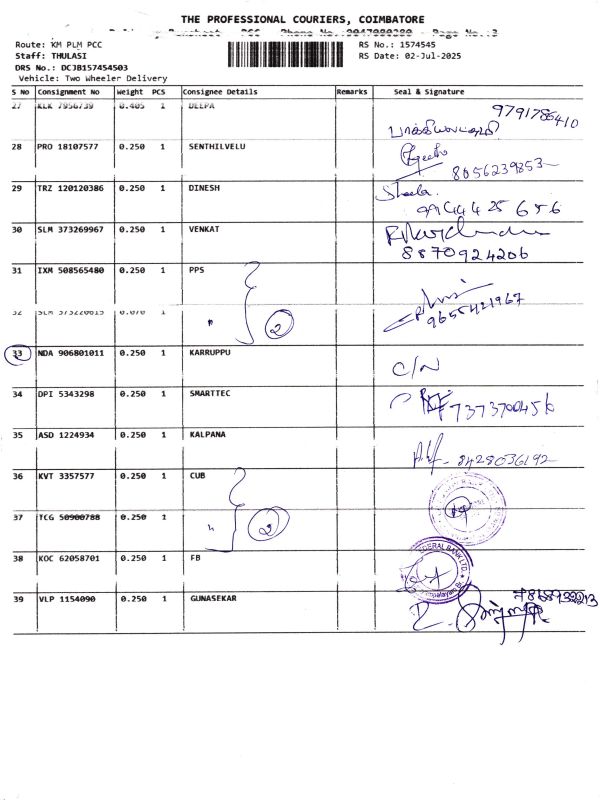 THE PROFESSIONAL COURIERS, COIMBATORE
Route: KM PLM PCC
RS No.: 1574545
Staff: THULASI
RS Date: 02-Jul-2025
DRS No.: DCJB157454503
Vehicle: Two Wheeler Delivery
S No Consignment No Weight PCS Consignee Details Remarks Seal & Signature
27 KLK 7956739 0.405 1 DEEPA 9791786410
பாக்கியலட்சுமி
28 PRO 18107577 0.250 1 SENTHILVELU
8056239853
29 TRZ 120120386 0.250 1 DINESH Sheela.
9944425656
30 SLM 373269967 0.250 1 VENKAT
8870924206
31 IXM 508565480 0.250 1 PPS
9655421967
32 SLM 373220615 0.070 1 " 2
33 NDA 906801011 0.250 1 KARRUPPU C/N
34 DPI 5343298 0.250 1 SMARTTEC 7373700456
35 ASD 1224934 0.250 1 KALPANA 8428036192
36 KVT 3357577 0.250 1 CUB
37 TCG 50900788 0.250 1 " 2
38 KOC 62058701 0.250 1 FB FEDERAL BANK LTD.
39 VLP 1154090 0.250 1 GUNASEKAR 7868932213